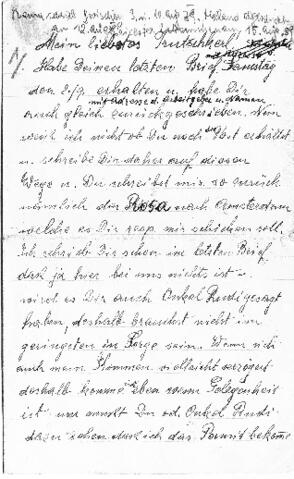 Mein liebstes
Habe Deinen letzten Brief Samstag
den 2/9 erhalten u. habe Dir
mit Adresse d. u. Namen
auch gleich zurückgeschrieben. Nun
weiß ich nicht ob Du noch Post erhältst
u. schreibe Dir daher auf diesen
Wege u. Du schreibst mir so zurück
nämlich der Rosa nach Amsterdam
welche es Dir resp. mir schicken soll.
Ich schrieb Dir schon im letzten Brief
daß ja hier bei uns nichts ist u.
wird es Dir auch Onkel Rudi gesagt
haben, deshalb brauchst nicht im
geringsten in Sorge sein. Wenn sich
auch mein Kommen vielleicht verzögert
deshalb komme eben wenn Gelegenheit
ist u. Dir od. Onkel Rudi
dazu sehen daß ich das Permit bekomme